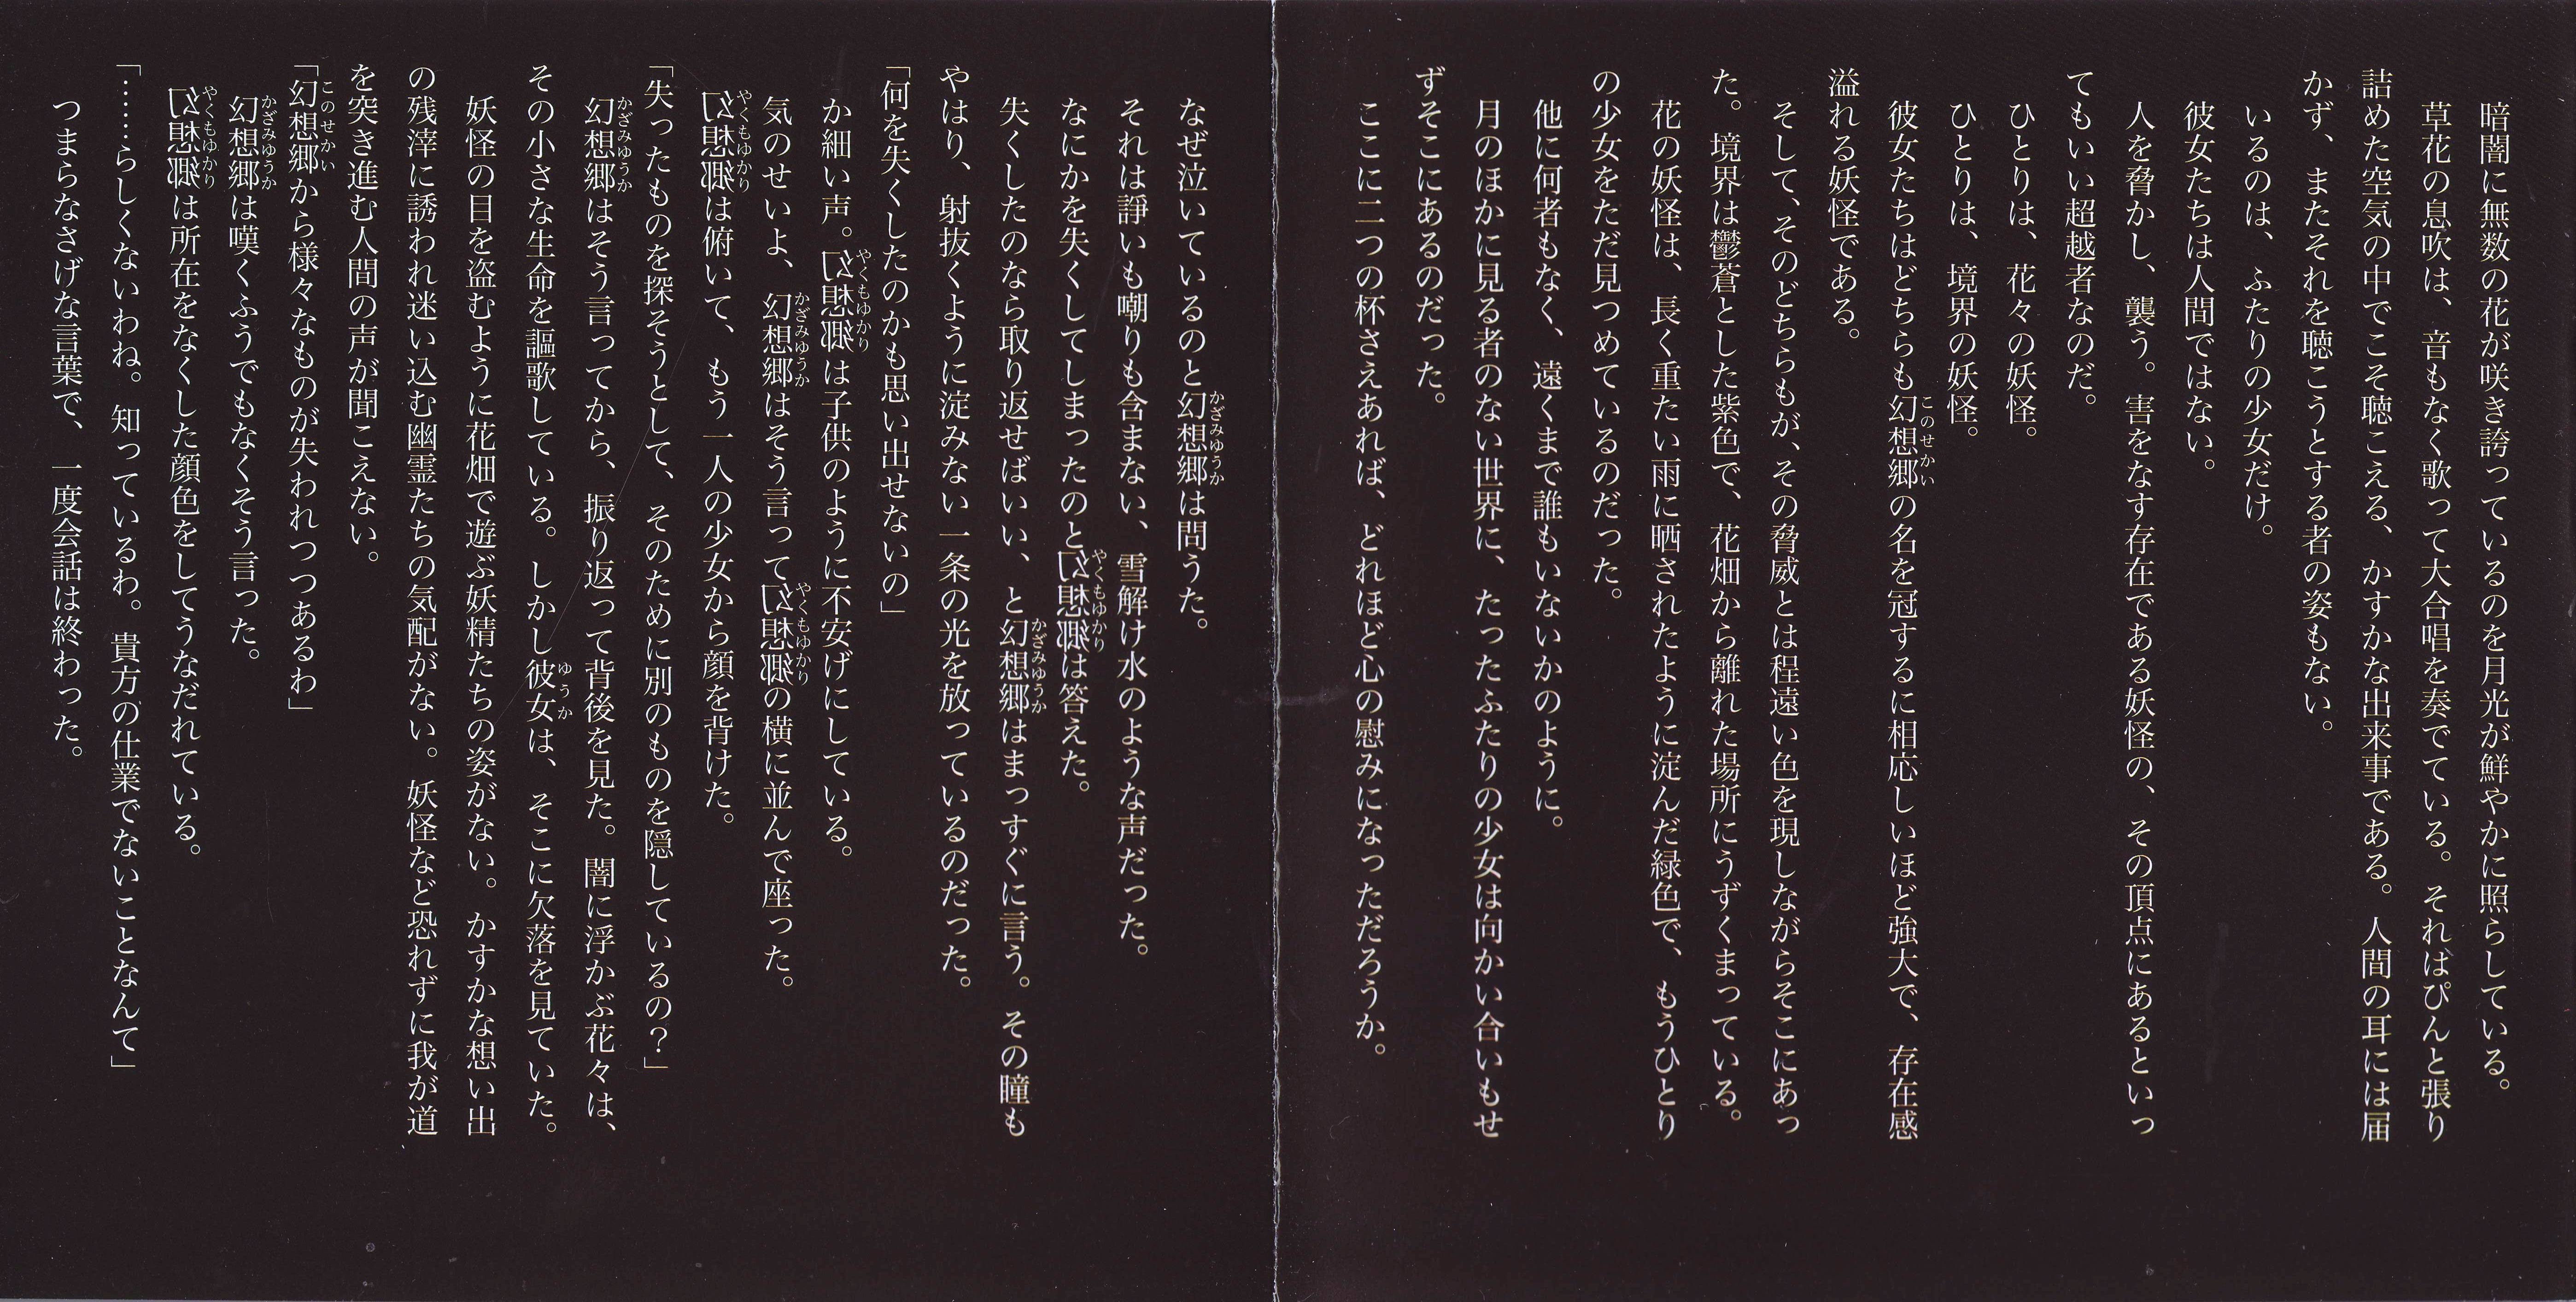 暗闇に無数の花が咲き誇っているのを月光が鮮やかに照らしている。
草花の息吹は、音もなく歌って大合唱を奏でている。それはぴんと張り
詰めた空気の中でこそ聴こえる、かすかな出来事である。人間の耳には届
かず、またそれを聴こうとする者の姿もない。
いるのは、ふたりの少女だけ。
彼女たちは人間ではない。
人を脅かし、襲う。害をなす存在である妖怪の、その頂点にあるといっ
てもいい超越者なのだ。
ひとりは、花々の妖怪。
ひとりは、境界の妖怪。
彼女たちはどちらも幻想郷（このせかい）の名を冠するに相応しいほど強大で、存在感
溢れる妖怪である。
そして、そのどちらもが、その脅威とは程遠い色を現しながらそこにあっ
た。境界は鬱蒼とした紫色で、花畑から離れた場所にうずくまっている。
花の妖怪は、長く重たい雨に晒されたように淀んだ緑色で、もうひとり
の少女をただ見つめているのだった。
他に何者もなく、遠くまで誰もいないかのように。
月のほかに見る者のない世界に、たったふたりの少女は向かい合いもせ
ずそこにあるのだった。
ここに二つの杯さえあれば、どれほど心の慰みになっただろうか。
なぜ泣いているのと幻想郷（かざみゆうか）は問うた。
それは諍いも嘲りも含まない、雪解け水のような声だった。
なにかを失くしてしまったのと幻想郷（やくもゆかり）は答えた。
失くしたのなら取り返せばいい、と幻想郷（かざみゆうか）はまっすぐに言う。その瞳も
やはり、射抜くように淀みない一条の光を放っているのだった。
「何を失くしたのかも思い出せないの」
か細い声。幻想郷（やくもゆかり）は子供のように不安げにしている。
気のせいよ、幻想郷（かざみゆうか）はそう言って幻想郷（やくもゆかり）の横に並んで座った。
幻想郷（やくもゆかり）は俯いて、もう一人の少女から顔を背けた。
「失ったものを探そうとして、そのために別のものを隠しているの？」
幻想郷（かざみゆうか）はそう言ってから、振り返って背後を見た。闇に浮かぶ花々は、
その小さな生命を謳歌している。しかし彼女（ゆうか）は、そこに欠落を見ていた。
妖怪の目を盗むように花畑で遊ぶ妖精たちの姿がない。かすかな想い出
の残滓に誘われ迷い込む幽霊たちの気配がない。妖怪など恐れずに我が道
を突き進む人間の声が聞こえない。
「幻想郷（このせかい）から様々なものが失われつつあるわ」
幻想郷（かざみゆうか）は嘆くふうでもなくそう言った。
幻想郷（やくもゆかり）は所在をなくした顔色をしてうなだれている。
「……らしくないわね。知っているわ。貴方の仕業でないことなんて」
つまらなさげな言葉で、一度会話は終わった。